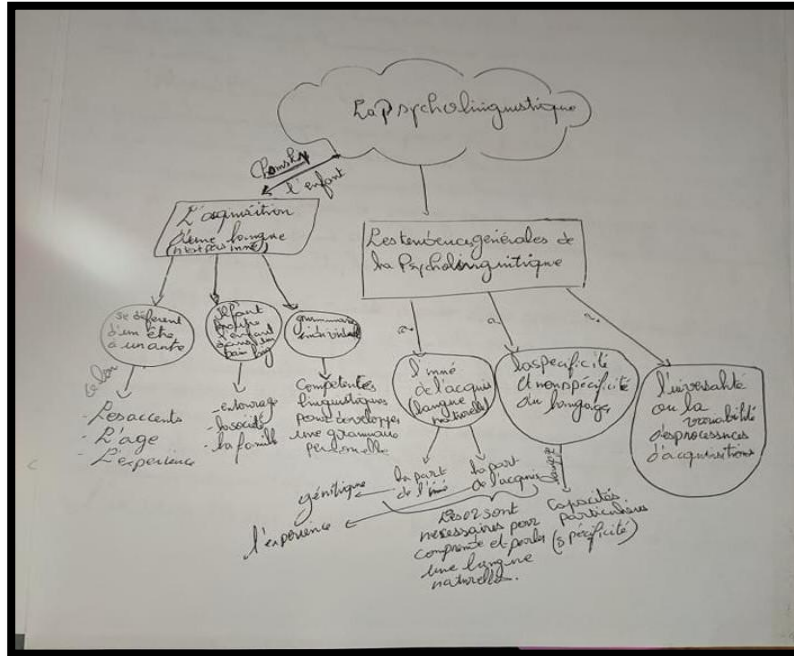 La Psycholinguistique
Chomsky
l'enfant
L'aquisition
d'une langue
(n'est pas inné)
Les tendences générales de
la Psycholinguitique
se diférent
d'un être
à un autre
Il faut
l'enfant
dans un
bain
grammaire
individuel
selon
- Les accents
- L'age
- L'experience
- entourage
- la société
- la famille
Compétentes
linguistiques
pour développer
une grammaire
personnelle
l'inné
de l'acquis
(langue
naturelle)
la spécificité
et non spécificité
du langage
l'iversalité
ou la
variabilité
des processuces
d'acquisitions
la part
de l'inné
la part
de l'acquis
génitique
l'experience
Les 02 sont
necessaires pour
comprente et parler
une langue
naturelle.
langage
Capacités
particulieres
(spécificité)